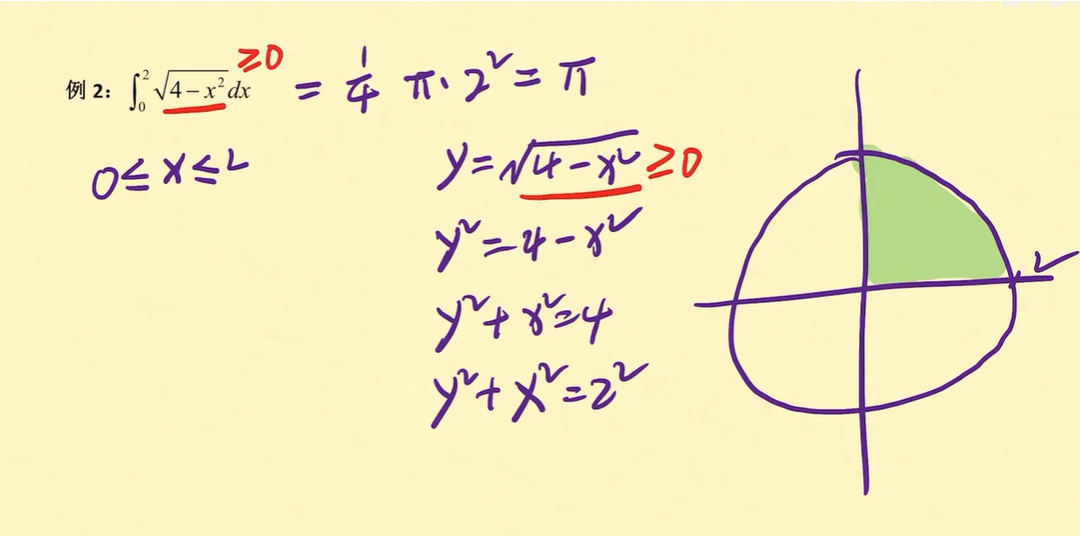 例 2： ∫₀² √(4−x²) dx ≥0 = 1/4 π·2² = π
0≤x≤2
y=√(4−x²) ≥0
y²=4−x²
y²+x²=4
y²+x²=2²
2